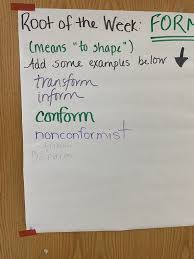 Root of the Week: FORM
(means "to shape")
Add some examples below
transform
inform
conform
nonconformist